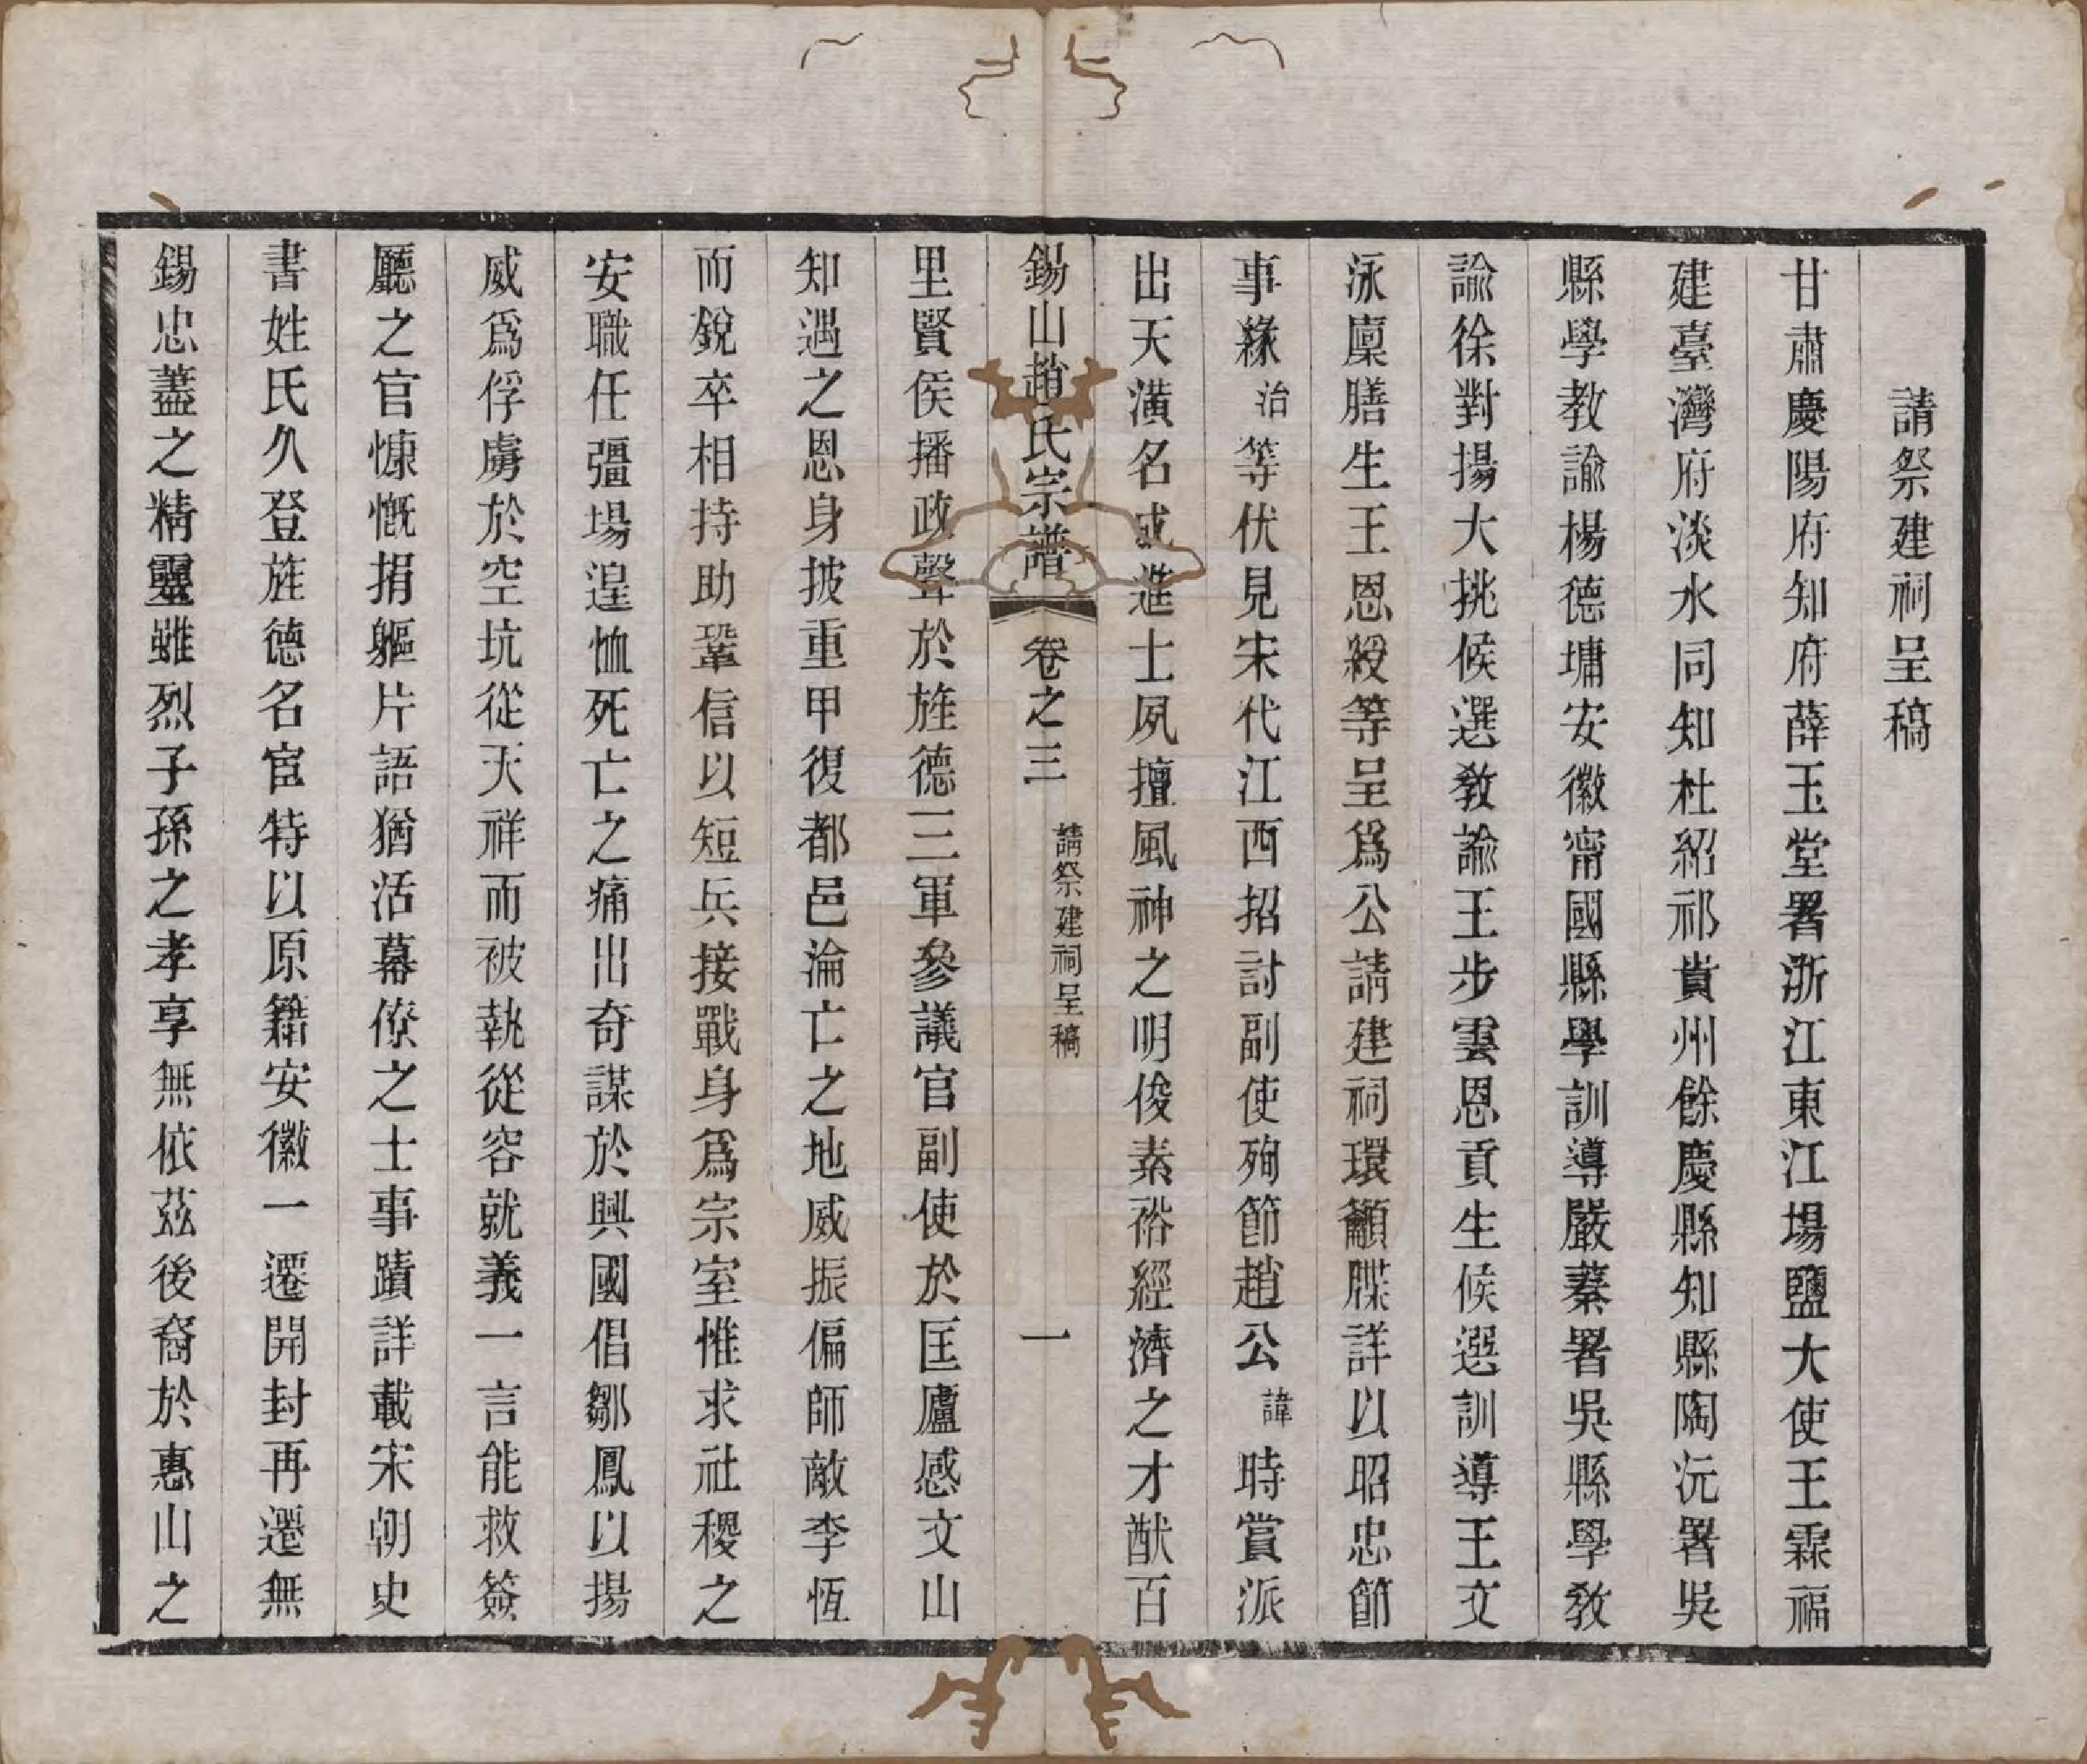 請祭建祠呈稿
甘肅慶陽府知府薛玉堂署浙江東江場鹽大使王霖福
建臺灣府淡水同知杜紹祁貴州餘慶縣知縣陶沅署吳
縣學教諭楊德墉安徽甯國縣學訓導嚴蓁署吳縣學敎
諭徐對揚大挑候選敎諭王步雲恩貢生候選訓導王文
泳廩膳生王恩綬等呈爲公請建祠環籲牒詳以昭忠節
事緣治等伏見宋代江西招討副使殉節趙公諱時賞派
出天潢名成進士夙擅風神之明俊素裕經濟之才猷百
錫山趙氏宗譜 卷之三 請祭建祠呈稿 一
里賢侯播政聲於旌德三軍參議官副使於匡廬感文山
知遇之恩身披重甲復都邑淪亡之地威振偏師敵李恆
而銳卒相持助鞏信以短兵接戰身爲宗室惟求社稷之
安職任彊場遑恤死亡之痛出奇謀於興國倡鄒鳳以揚
威爲俘虜於空坑從天祥而被執從容就義一言能救簽
廳之官慷慨捐軀片語猶活幕僚之士事蹟詳載宋朝史
書姓氏久登旌德名宦特以原籍安徽一遷開封再遷無
錫忠藎之精靈雖烈子孫之孝享無依茲後裔於惠山之